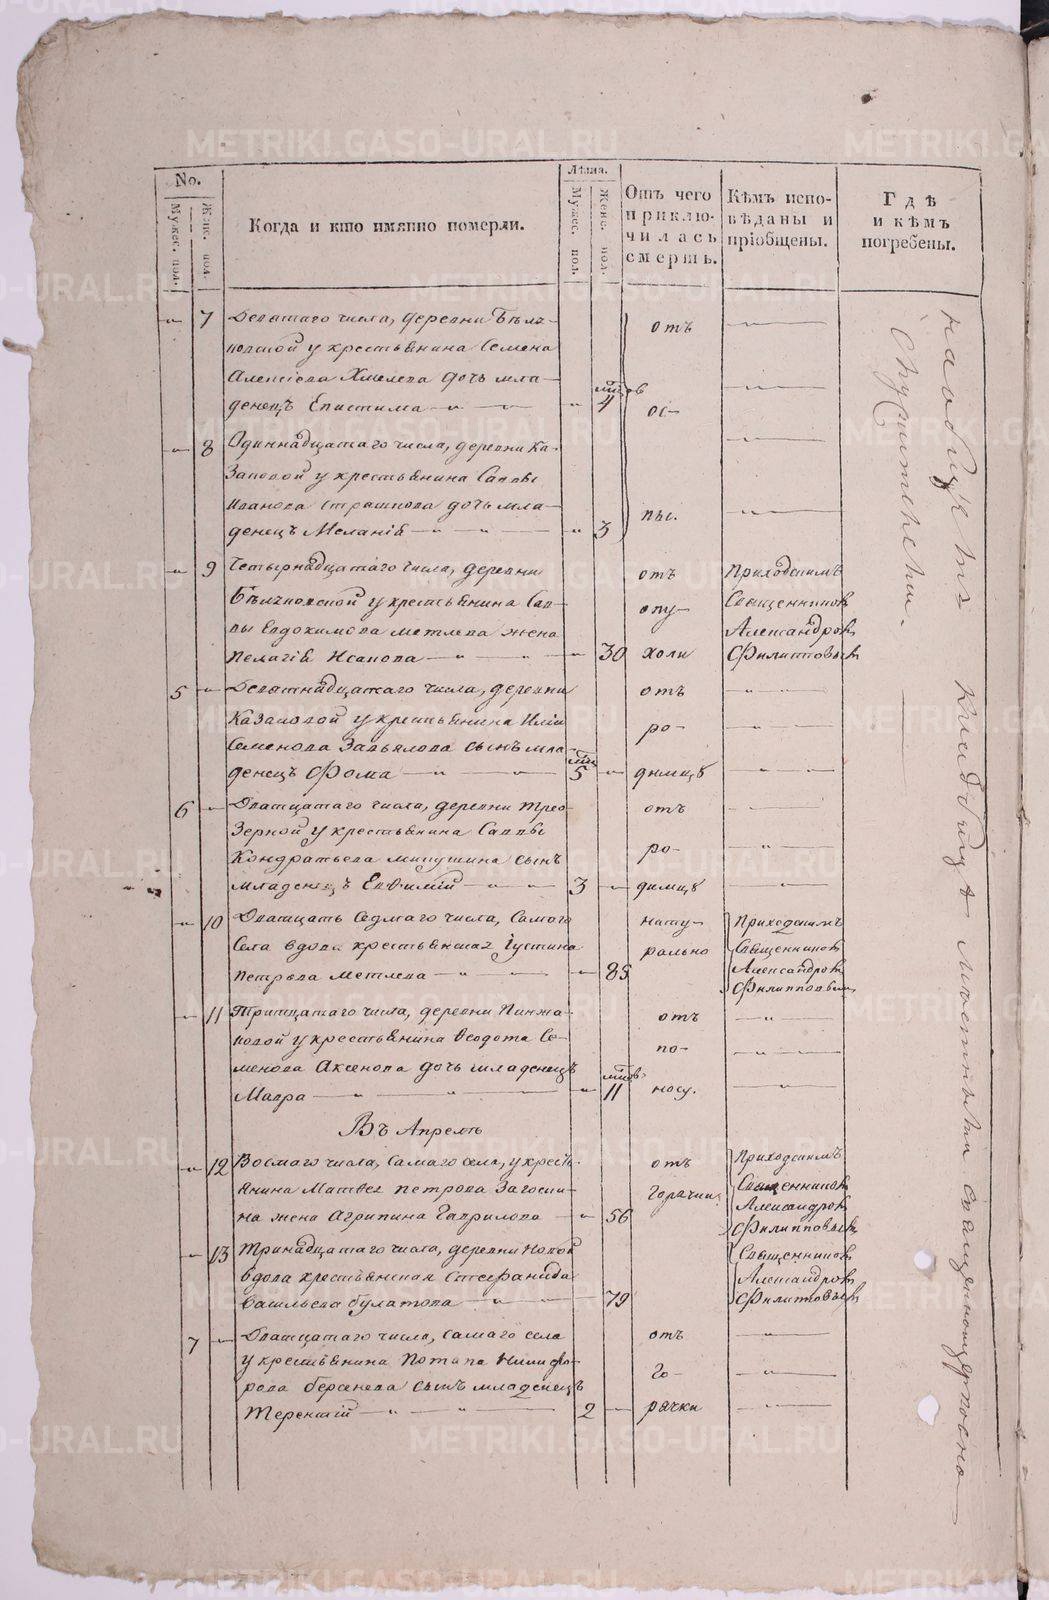 No.
Мужес. пол.
Женс. пол.
Когда и кто имянно померли.
Лѣта.
Мужес. пол.
Женс. пол.
Отъ чего
приклю-
чилась
смерть.
Кѣмъ испо-
вѣданы и
пріобщены.
Гдѣ
и кѣмъ
погребены.
7 Девятаго числа, деревни
у крестьянина Семена
Хмелева дочь мла-
денецъ Епистима 4
8 Одиннадцатаго числа, деревни Ка-
заковой у крестьянина Саввы
Иванова Страшкова дочь мла-
денецъ Меланія 3
отъ
ос-
пы.
9 Четырнадцатаго числа, деревни
у крестьянина Сав-
вы Евдокимова Метлева жена
Пелагія Исакова 30
отъ
опу-
холи
Приходскимъ
Священникомъ
Александромъ
Филипповымъ
5 Девятнадцатаго числа, деревни
Казаковой у крестьянина Иліи
Семенова Завьялова сынъ мла-
денецъ Фома 5
отъ
ро-
димца
6 Дватцатаго числа, деревни Трео-
зерной у крестьянина Саввы
Кондратьева Микушина сынъ
младенецъ Евфимій 3
отъ
ро-
димца
10 Дватцать седмаго числа, самаго
села вдова крестьянская Іустина
Петрова Метлева 85
нату-
рально
Приходскимъ
Священникомъ
Александромъ
Филипповымъ
11 Тритцатаго числа, деревни
у крестьянина Ѳеодота Се-
менова Аксенова дочь младенецъ
Мавра 11
отъ
по-
носу.
Въ Апрелѣ
12 Восмаго числа, самаго села, у кресть-
янина Матвея Петрова
жена Агрипина Гаврилова 56
отъ
горячки
Приходскимъ
Священникомъ
Александромъ
Филипповымъ
13 Тринадцатаго числа, деревни Новой
вдова крестьянская Стефанида
Васильева Булатова 79
Священникомъ
Александромъ
Филипповымъ
7 Дватцатаго числа, самаго села
у крестьянина Потапа Никифо-
рова Берсенева сынъ младенецъ
Терентій 2
отъ
го-
рячки
На общемъ кладбищѣ мѣстными священноцерковно-
служителями.
METRIKI.GASO-URAL.RU